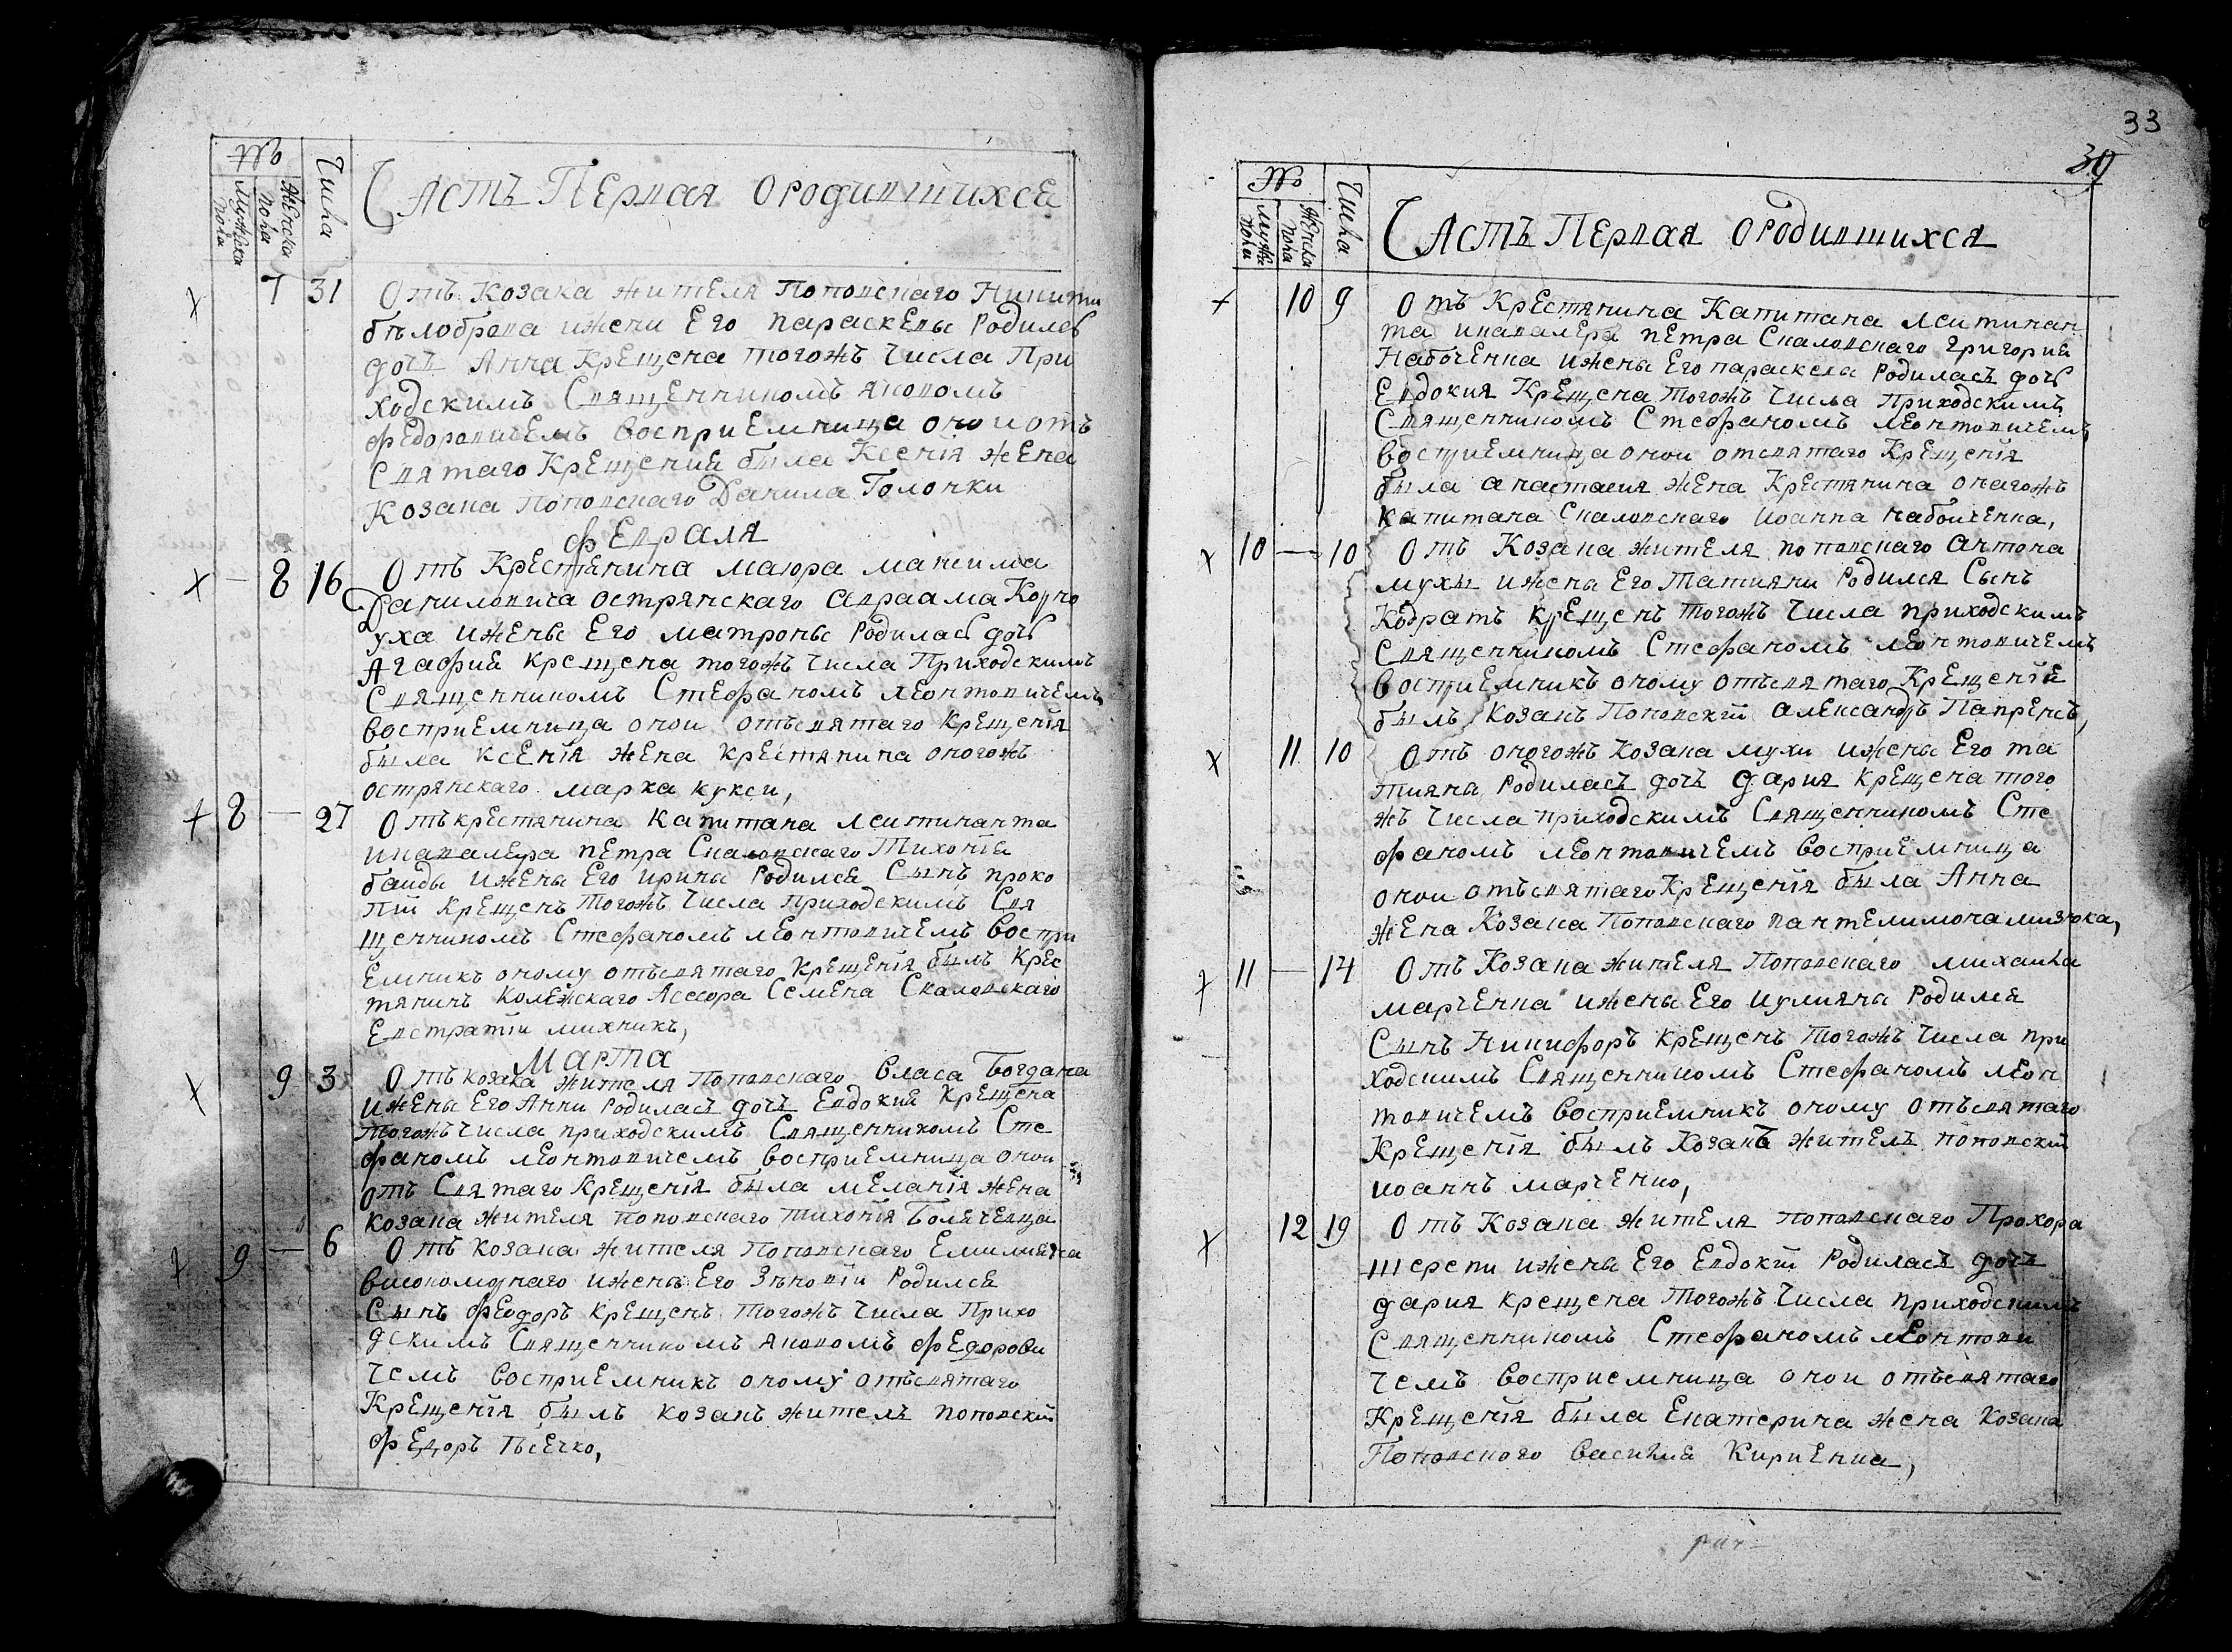 №
Мужеска пола
Женска пола
Числа
Часть Первая о родившихся
7 31 Отъ Козака жителя Поповскаго Никити
бѣлоброва ижени Его параскевы Родилась
дочь Анна Крещена тогожъ Числа При
ходскимъ Священникомъ Яковомъ
Федоровичемъ восприемница оной отъ
Святаго Крещения была Ксенія жена
Козака Поповскаго Данила Голочки
Февраля
8 16 Отъ Крестянина маюра максима
Даниловича острянскаго Авраама Корно
уха ижены Его матроны Родилась дочь
Агафия крещена тогожъ числа Приходскимъ
Священникомъ Стефаномъ леонтовичемъ
восприемница оной отъ святаго крещенія
была ксенія жена крестянина оногожъ
острянскаго марка кукси,
8 — 27 Отъ крестянина Капитана леитинанта
икавалера петра Скаловскаго Тихонія
баиды ижены Его ирины Родился Сынъ проко
пій Крещенъ Тогожъ Числа приходскимъ Свя
щенникомъ Стефаномъ леонтовичемъ воспри
емникъ оному отъ святаго Крещенія былъ Крес
тянинъ Колежскаго Асесора Семена Скаловскаго
Евстратій михникъ,
Марта
9 3 Отъ козака жителя Поповскаго власа Богдана
ижены Его Анни Родилась дочь Евдокия Крещена
тогожъ числа приходскимъ Священникомъ Сте
фаномъ леонтовичемъ восприемница оной
отъ Святаго Крещенія была меланія жена
козака жителя поповскаго тихонія
9 — 6 Отъ козака жителя Поповскаго Емилияна
високомирнаго ижены Его Зѣновіи Родился
Сынъ Феодоръ Крещенъ Тогожъ Числа Прихо
дскимъ Священникомъ Яковомъ Федорови
чемъ восприемникъ оному отъ святаго
Крещенія былъ козакъ житель поповскій
Федоръ
33
39
№
Муже пола
Женска пола
Числа
Часть Первая о родившихся
10 9 Отъ Крестянина Капитана леитинан
та икавалера петра Скаловскаго григория
Набоченка ижены Его параскева Родилась дочь
Евдокия Крещена Тогожъ Числа Приходскимъ
Священникомъ Стефаномъ леонтовичемъ
восприемница оной отсвятаго Крещенія
была анастасия жена Крестянина онагожъ
капитана Скаловскаго Иоанна набоиченка,
10 — 10 Отъ Козака жителя поповскаго антона
мухи ижены Его Татияни Родился Сынъ
Кодратъ Крещенъ тогожъ Числа приходскимъ
Священникомъ Стефаномъ леонтовичемъ
восприемникъ оному отъсвятаго Крещенія
былъ Козакъ Поповскій александръ
11 10 Отъ оногожъ Козака мухи ижены Его та
тияна Родилась дочь дария крещена того
жъ Числа приходскимъ Священникомъ Сте
фаномъ леонтовичемъ восприемница
оной отъсвятаго Крещенія была Анна
жена Козака Поповскаго пантелимона мизюка,
11 — 14 Отъ Козака жителя Поповскаго михаила
марченка ижены Его иулияны Родился
Сынъ Никифоръ крещенъ тогожъ числа при
ходскимъ Священникомъ Стефаномъ леон
товичемъ восприемникъ оному отъсвятаго
Крещенія былъ Козакъ житель поповский
иоаннъ марченко,
12 19 Отъ Козака жителя поповскаго Прохора
шерепи ижены Его Евдокіи Родилась дочь
дария крещена Тогожъ Числа приходскимъ
Священникомъ Стефаномъ леонтови
чемъ восприемница оной отъсвятаго
Крещенія была Екатерина жена Козака
Поповского василия Кириенка,